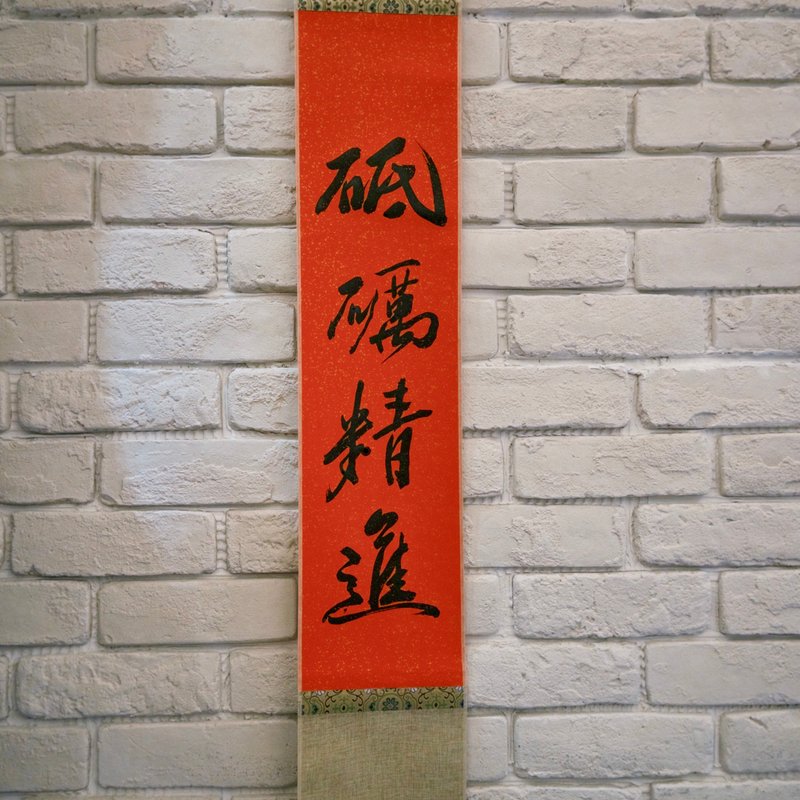 砥礪精進